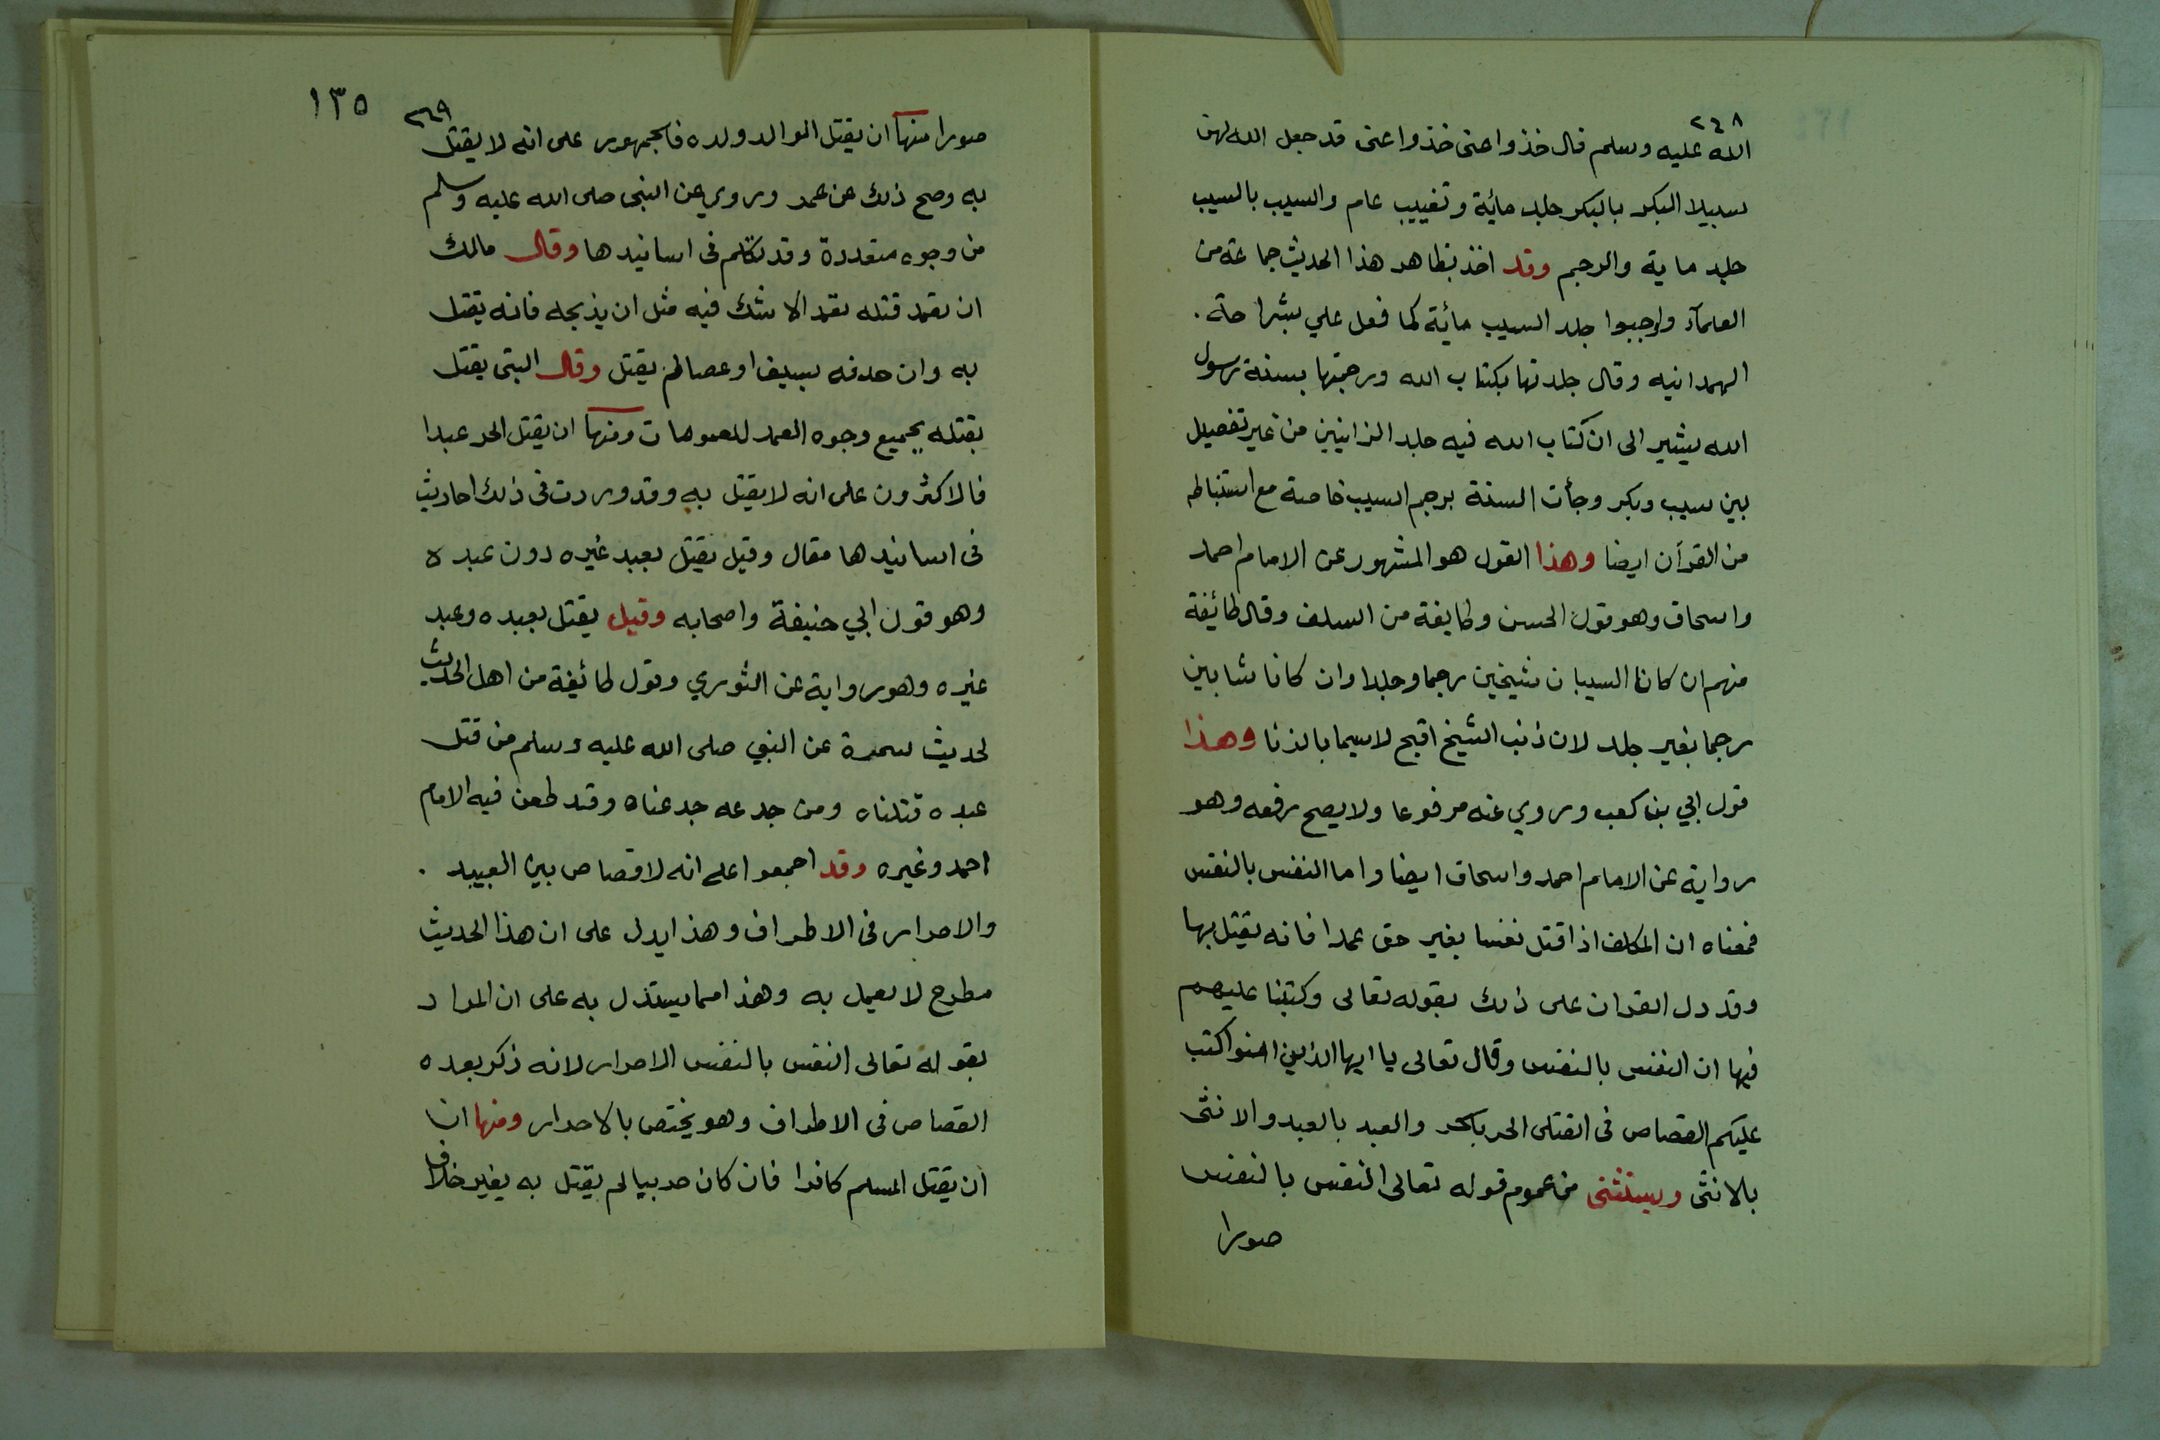 ٢٦٨
الله عليه وسلم قال خذوا عني خذوا عني قد جعل الله لهن
سبيلا البكر بالبكر جلد مائية وتغييب عام والسيب بالسيب
جلد ماية والرجم وقد اخذ بظاهر هذا الحديث جماعة من
العلمآء واوجبوا جلد السيب مائة كما فعل علي بشراحة .
الهمدانيه وقال جلدتها بكتاب الله ورجمتها بسنة رسول
الله يشير الى ان كتاب الله فيه جلد الزانيين من غير تفصيل
بين سيب وبكر وجأت السنة برجم السيب خاصة مع استنباطه
من القرآن ايضا وهذا القول هو المشهور عن الامام احمد
واسحاق وهو قول الحسن وطايفة من السلف وقال طائيفة
منهم ان كانا السيبان شيخين رجما وجلدا وان كانا شابين
رجما بغير جلد لان ذنب الشيخ اقبح لاسيما بالزنا وهذا
قول ابي بن كعب وروي عنه مرفوعا ولا يصح رفعه وهو
رواية عن الامام احمد واسحاق ايضا واما النفس بالنفس
فمعناه ان المكلف اذا قتل نفسا بغير حق عمدا فانه يقتل بها
وقد دل القران على ذلك بقوله تعالى وكتبنا عليهم
فيها ان النفس بالنفس وقال تعالى يا ايها الذين امنوا كتب
عليكم القصاص في القتلى الحر بالحر والعبد بالعبد والانثى
بالانثى ويستثنى من عموم قوله تعالى النفس بالنفس
صورا
١٣٥
٢٦٩
صورا منها ان يقتل الوالد ولده فالجمهور على انه لا يقتل
به وصح ذلك عن عمر وروي عن النبي صلى الله عليه وسلم
من وجوه متعددة وقد تكلم في اسانيدها وقال مالك
ان تعمد قتله تعمدا لا شك فيه مثل ان يذبحه فانه يقتل
به وان حذفه بسيف او عصا لم يقتل وقال البتي يقتل
بقتله بجميع وجوه العمد للعمومات ومنها ان يقتل الحر عبدا
فالاكثرون على انه لا يقتل به وقد وردت في ذلك احاديث
في اسانيدها مقال وقيل يقتل بعبد غيره دون عبده
وهو قول ابي حنيفة واصحابه وقيل يقتل بعبده وعبد
غيره وهو رواية عن الثوري وقول طائيفة من اهل الحديث
لحديث سمرة عن النبي صلى الله عليه وسلم من قتل
عبده قتلناه ومن جدعه جدعناه وقد طعن فيه الامام
احمد وغيره وقد اجمعوا على انه لا قصاص بين العبيد .
والاحرار في الاطراف وهذا يدل على ان هذا الحديث
مطرح لا يعمل به وهذا مما يستدل به على ان المراد
بقوله تعالى النفس بالنفس الاحرار لانه ذكر بعده
القصاص في الاطراف وهو يختص بالاحرار ومنها ان
ان يقتل المسلم كافرا فان كان حربيا لم يقتل به بغير خلاف